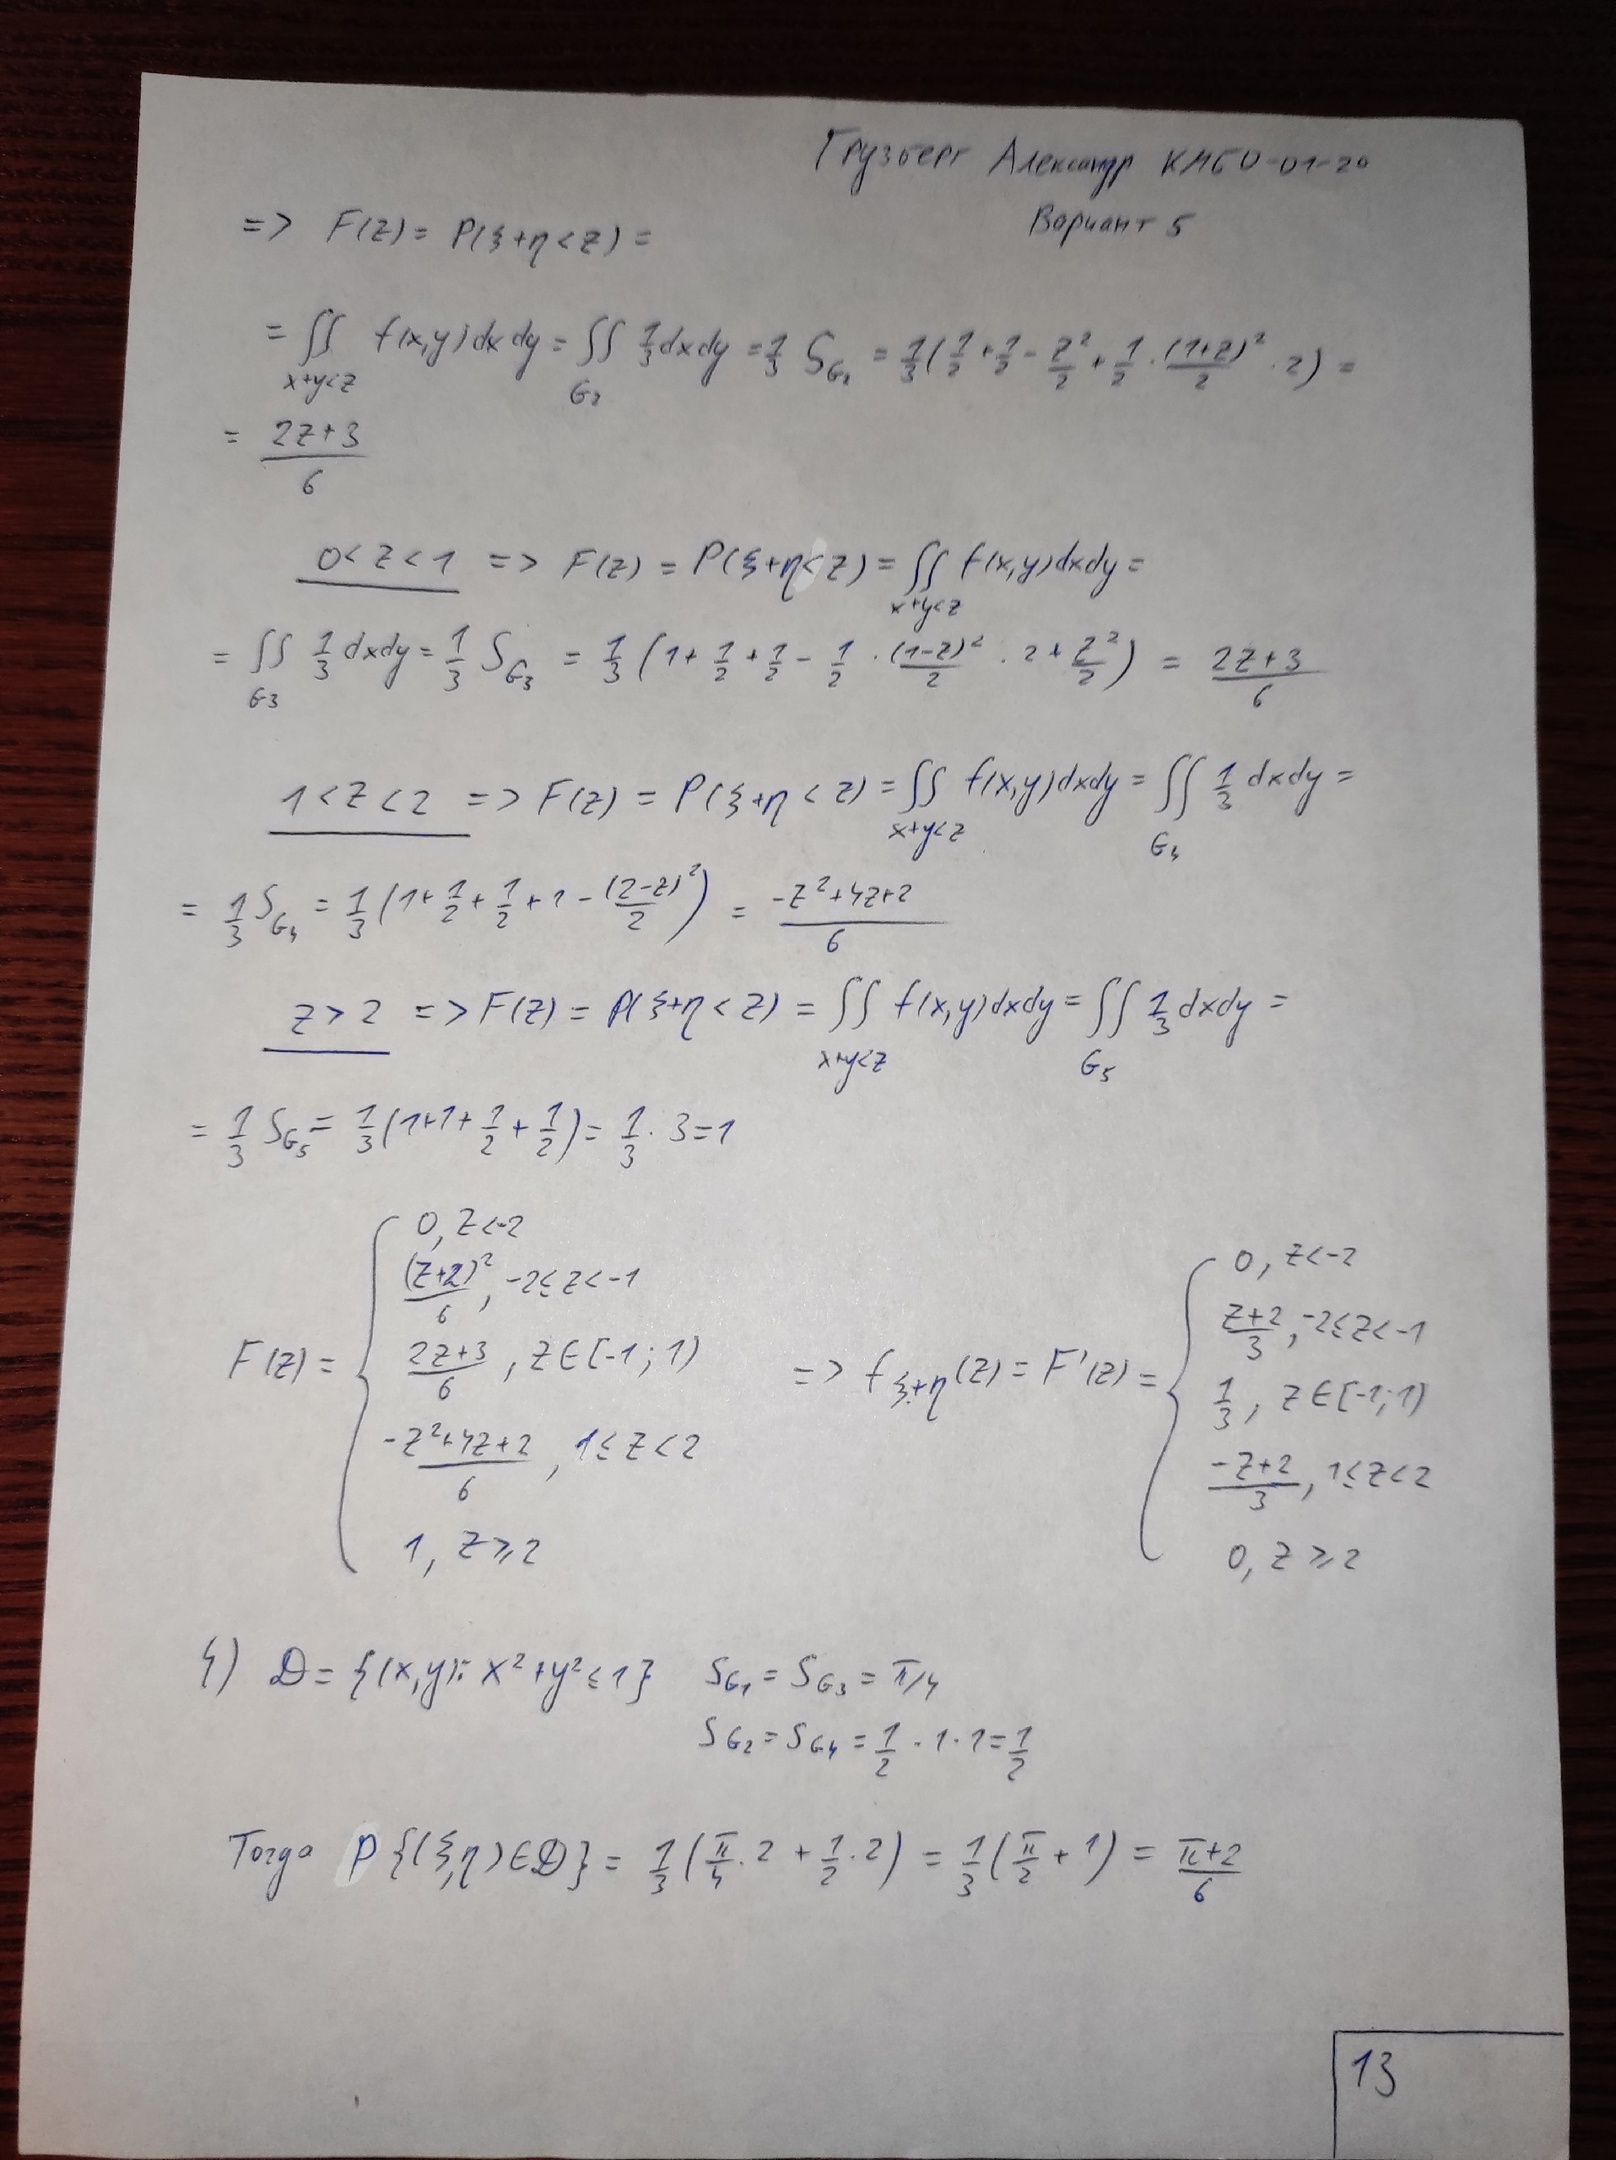 Грузберг Александр КМБО-01-20
Вариант 5
=> F(z) = P(ξ+η<z) =
= ∬_{x+y<z} f(x,y)dxdy = ∬_{G₂} 1/3 dxdy = 1/3 S_{G₂} = 1/3(1/2 + 1/2 - z²/2 + 1/2 · (1+z)²/2 · 2) =
= (2z+3)/6
0<z<1 => F(z) = P(ξ+η<z) = ∬_{x+y<z} f(x,y)dxdy =
= ∬_{G3} 1/3 dxdy = 1/3 S_{G3} = 1/3 (1 + 1/2 + 1/2 - 1/2 · (1-z)²/2 · 2 + z²/2) = (2z+3)/6
1<z<2 => F(z) = P(ξ+η<z) = ∬_{x+y<z} f(x,y)dxdy = ∬_{G4} 1/3 dxdy =
= 1/3 S_{G4} = 1/3 (1 + 1/2 + 1/2 + 1 - (2-z)²/2) = (-z²+4z+2)/6
z>2 => F(z) = P(ξ+η<z) = ∬_{x+y<z} f(x,y)dxdy = ∬_{G5} 1/3 dxdy =
= 1/3 S_{G5} = 1/3 (1+1+1/2+1/2) = 1/3 · 3 = 1
F(z) = { 0, z<-2
(z+2)²/6, -2≤z<-1
(2z+3)/6, z∈[-1;1)
(-z²+4z+2)/6, 1≤z<2
1, z≥2
=> f_{ξ+η}(z) = F'(z) = { 0, z<-2
(z+2)/3, -2≤z<-1
1/3, z∈[-1;1)
(-z+2)/3, 1≤z<2
0, z≥2
4) D = {(x,y): x²+y²≤1} S_{G1} = S_{G3} = π/4
S_{G2} = S_{G4} = 1/2 · 1 · 1 = 1/2
Тогда P{(ξ,η)∈D} = 1/3 (π/4 · 2 + 1/2 · 2) = 1/3 (π/2 + 1) = (π+2)/6
13